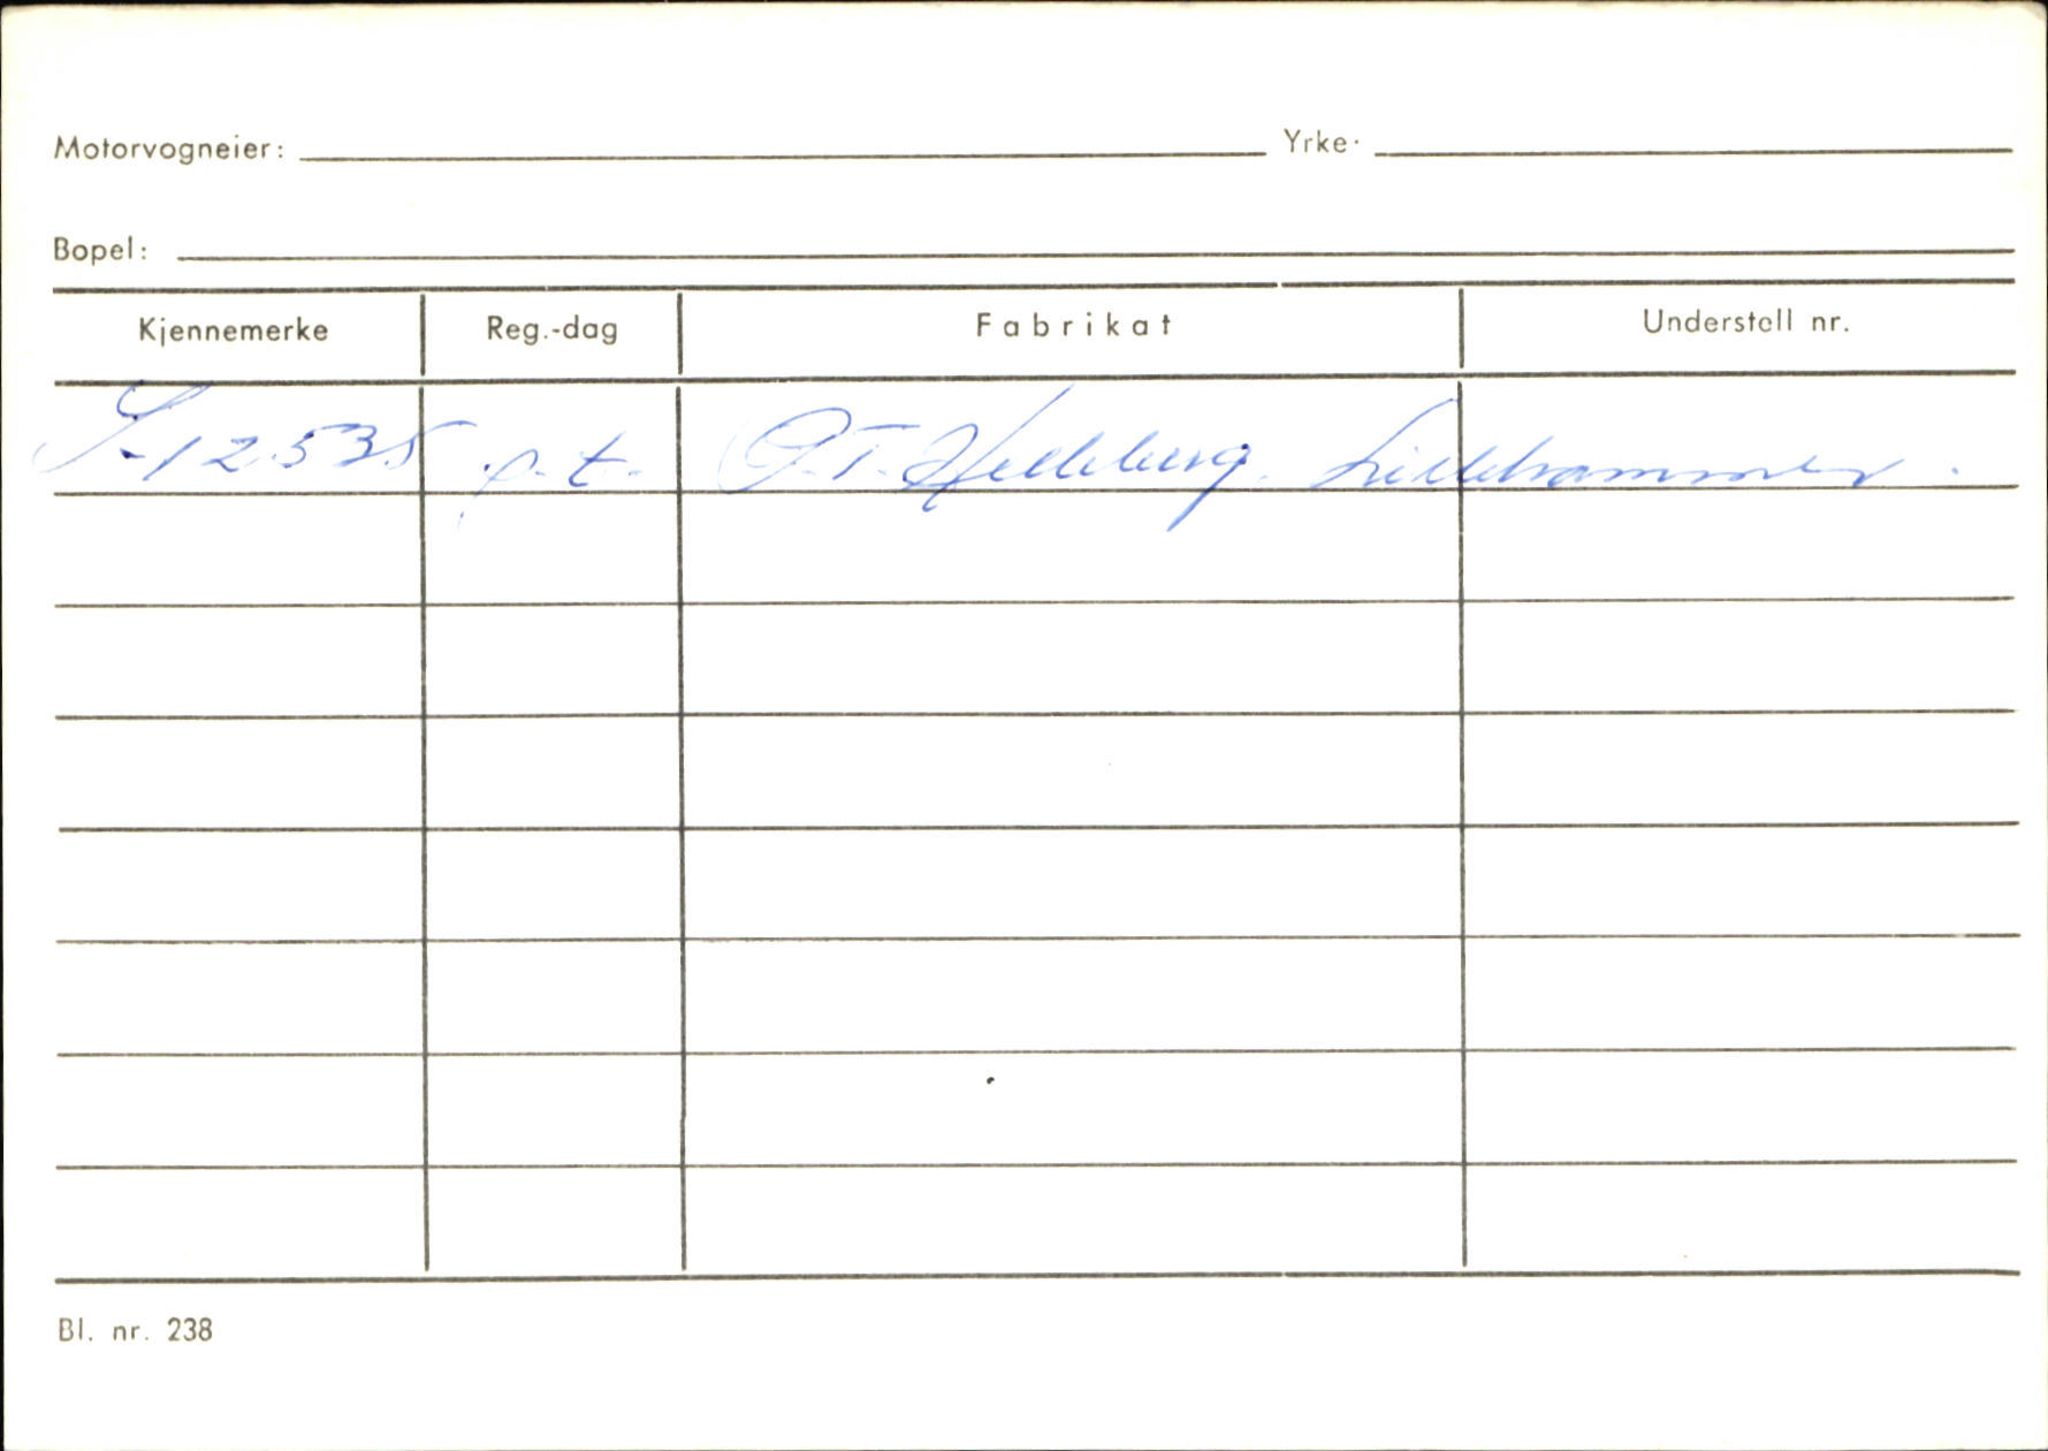 Motorvogneier: Yrke:
Bopel:
Kjennemerke Reg.-dag Fabrikat Understell nr.
S-12535 p.t. O.T. Hedeberg. Lillehammer.
Bl. nr. 238